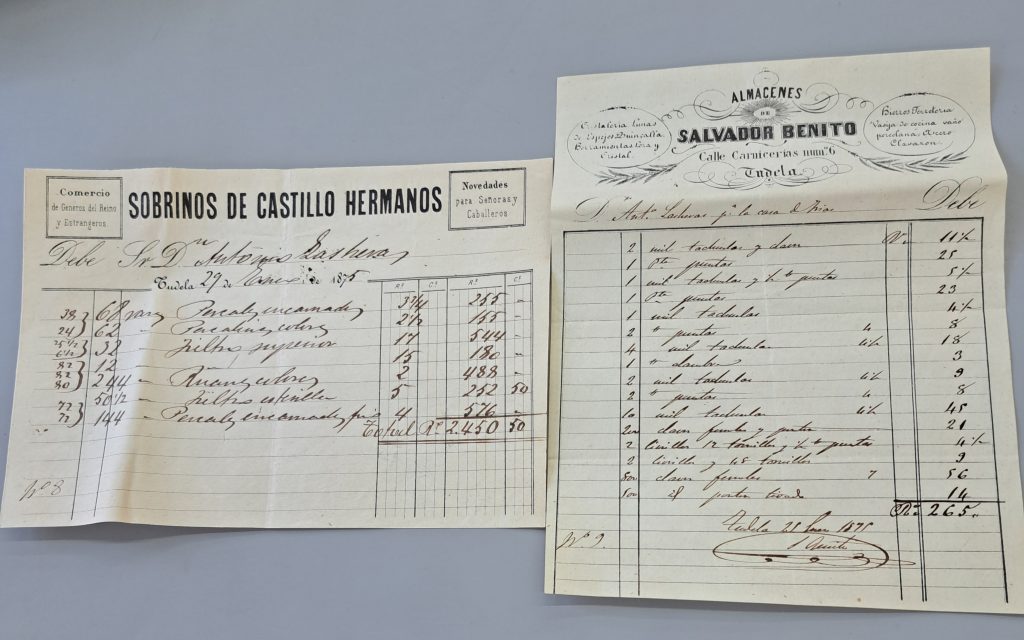 Comercio
de Generos del Reino
y Estrangeros.
SOBRINOS DE CASTILLO HERMANOS
Novedades
para Señoras y
Caballeros
Debe Sr. Dn. Antonio Lasheras
Tudela 29 de Enero de 1875
Rs. Cs. Rs. Cs.
38 68 varas Percalyn encarnado 3 3/4 255 -
24 62 - Percalyn color 2 1/2 155 -
25 1/2 6 1/2 32 - Fieltro superior 17 544 -
12 - 15 180 -
82 82 80 244 - Ruan color 2 488 -
50 1/2 - 5 252 50
72 72 144 - Percalyn encarnado 4 576 -
Total Rs. 2.450 50
Nº 8
ALMACENES
DE
SALVADOR BENITO
Calle Carnicerias num. 6
Tudela
Cristaleria Lunas
de Espejos Quincalla
Herramientas Loza y
Cristal.
Hierros Ferreteria
Vagija de cocina baño
porcelana Acero
Clavazon.
Dn. Antº Lasheras pª la casa de Debe
2 mil tachuelas y clavos Rn. 11 1/2
1 Pte puntas 25
1 mil tachuelas y 1/2 te puntas 5 1/2
1 Pte puntas 23
1 mil tachuelas 4 1/2
2 " puntas 4 8
4 mil tachuelas 4 1/2 18
1 " 3
2 mil tachuelas 4 1/2 9
2 " puntas 4 8
10 mil tachuelas 4 1/2 45
200 clavos 21
2 12 tornillos y 1/2 te puntas 4 1/2
2 y 48 tornillos 9
800 clavos 7 56
500 id 14
Rn. 265
Tudela 25 Enero 1875
S. Benito
Nº 9.